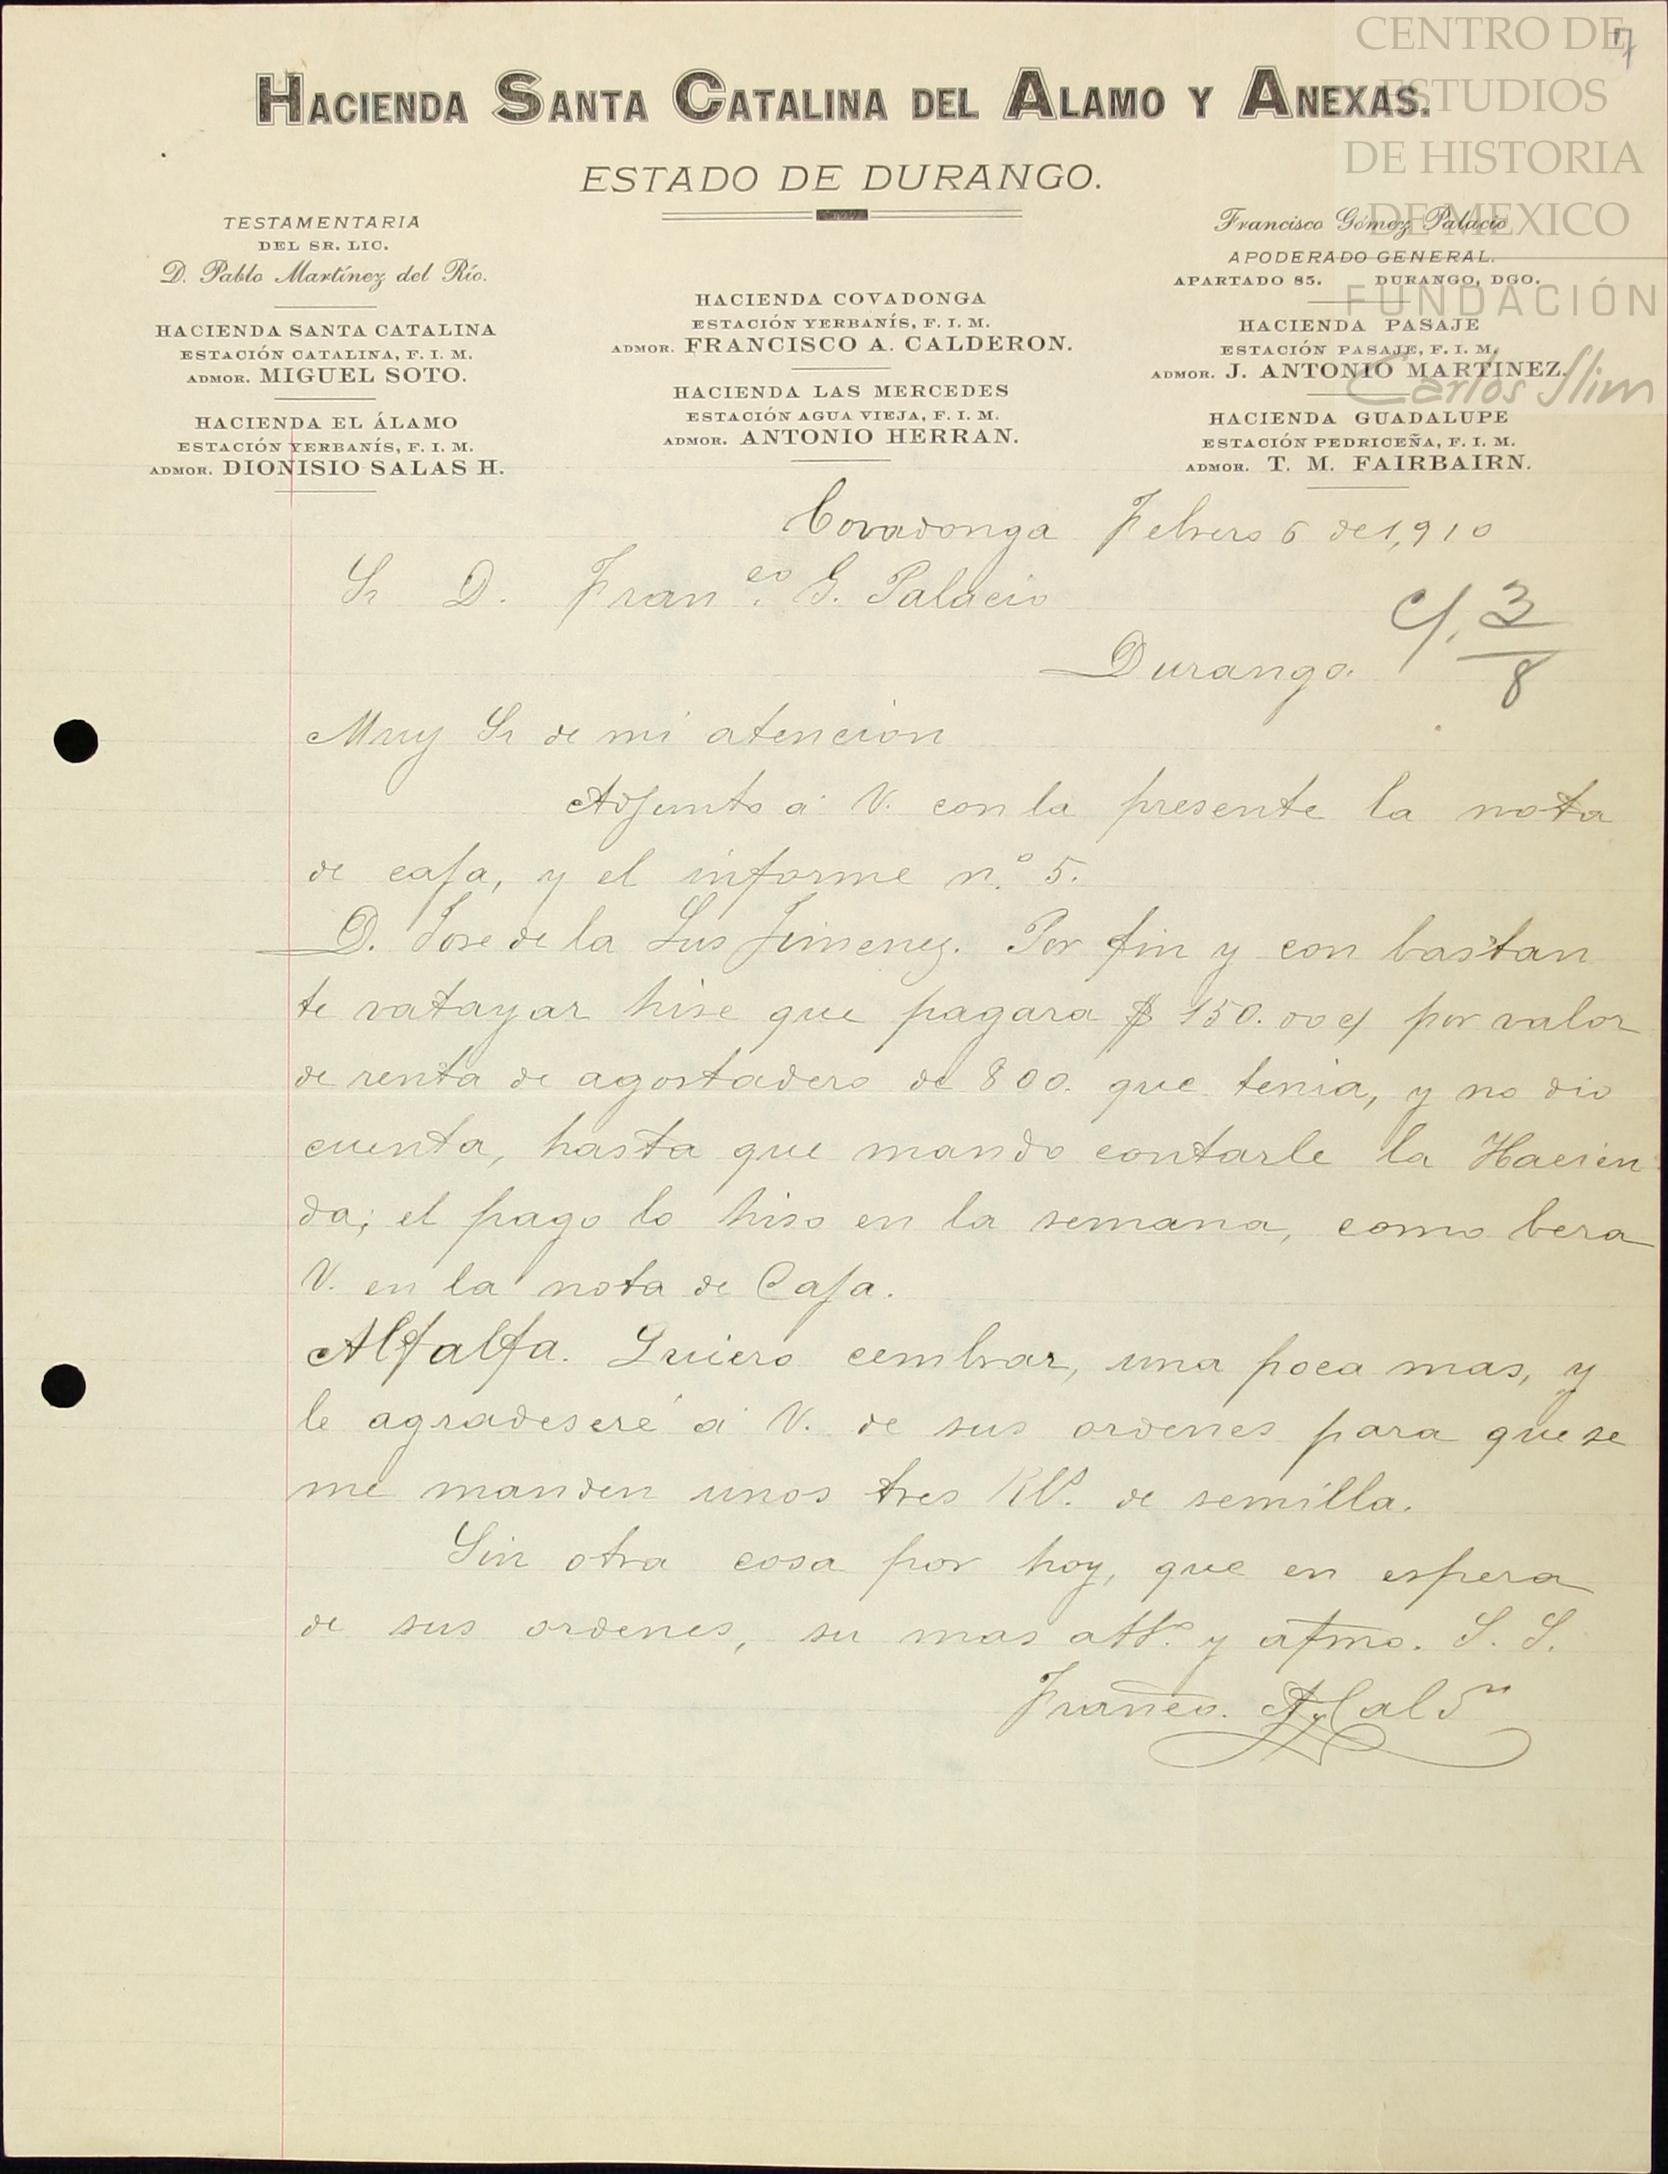 CENTRO DE
ESTUDIOS
DE HISTORIA
DE MEXICO
FUNDACIÓN
Carlos Slim
7
HACIENDA SANTA CATALINA DEL ALAMO Y ANEXAS.
ESTADO DE DURANGO.
TESTAMENTARIA
DEL SR. LIC.
D. Pablo Martínez del Río.
HACIENDA SANTA CATALINA
ESTACIÓN CATALINA, F. I. M.
ADMOR. MIGUEL SOTO.
HACIENDA EL ÁLAMO
ESTACIÓN YERBANÍS, F. I. M.
ADMOR. DIONISIO SALAS H.
HACIENDA COVADONGA
ESTACIÓN YERBANÍS, F. I. M.
ADMOR. FRANCISCO A. CALDERON.
HACIENDA LAS MERCEDES
ESTACIÓN AGUA VIEJA, F. I. M.
ADMOR. ANTONIO HERRAN.
Francisco Gómez Palacio
APODERADO GENERAL.
APARTADO 85. DURANGO, DGO.
HACIENDA PASAJE
ESTACIÓN PASAJE, F. I. M.
ADMOR. J. ANTONIO MARTINEZ.
HACIENDA GUADALUPE
ESTACIÓN PEDRICEÑA, F. I. M.
ADMOR. T. M. FAIRBAIRN.
Covadonga Febrero 6 de 1,910
Sr D. Fran.co G. Palacio
Durango.
C/. 3/8
Muy Sr de mi atencion
Adjunto a V. con la presente la nota
de caja, y el informe n.º 5.
D. Jose de la Lus Jimenez. Por fin y con bastan
te vatayar hise que pagara $ 150.00 c/ por valor
de renta de agostadero de 800. que tenia, y no dio
cuenta, hasta que mando contarle la Hacien
da; el pago lo hiso en la semana, como bera
V. en la nota de Caja.
Alfalfa. Quiero cembrar, una poca mas, y
le agradeseré a V. de sus ordenes para que se
me manden unos tres Kl.s de semilla.
Sin otra cosa por hoy, que en espera
de sus ordenes, su mas att.o y afmo. S. S.
Franco. A. Calon